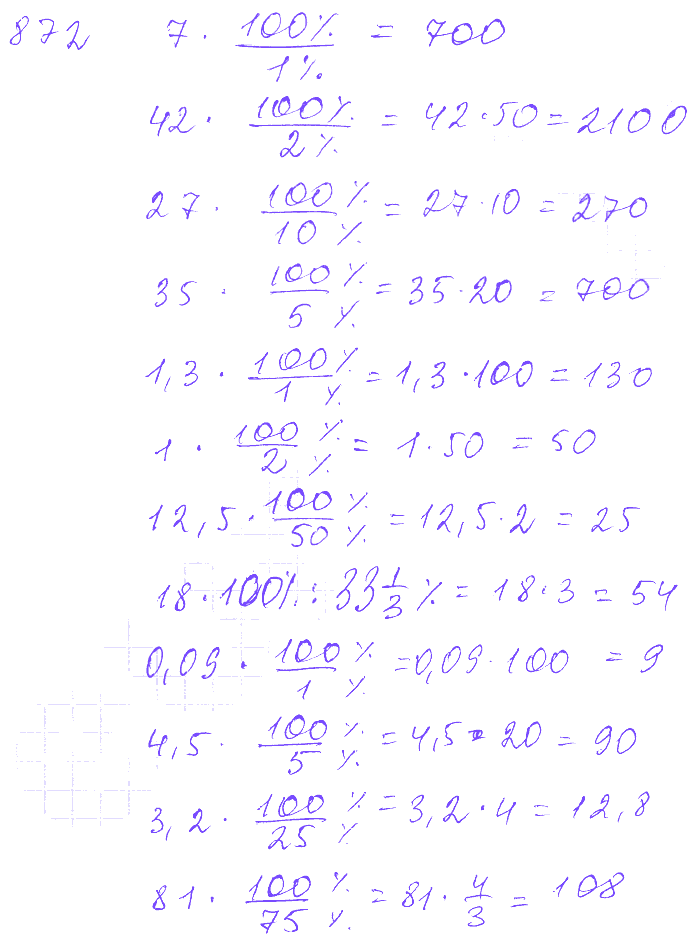 872 7 · 100%/1% = 700
42 · 100%/2% = 42 · 50 = 2100
27 · 100%/10% = 27 · 10 = 270
35 · 100%/5% = 35 · 20 = 700
1,3 · 100%/1% = 1,3 · 100 = 130
1 · 100%/2% = 1 · 50 = 50
12,5 · 100%/50% = 12,5 · 2 = 25
18 · 100% : 33 1/3 % = 18 · 3 = 54
0,09 · 100%/1% = 0,09 · 100 = 9
4,5 · 100%/5% = 4,5 · 20 = 90
3,2 · 100%/25% = 3,2 · 4 = 12,8
81 · 100%/75% = 81 · 4/3 = 108